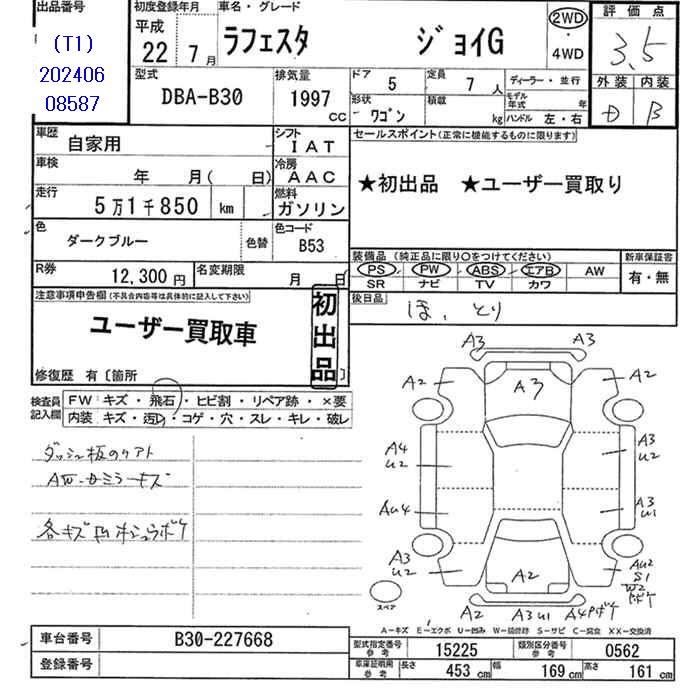 出品番号
(T1)
202406
08587
初度登録年月
平成
22 7月
車名・グレード
ラフェスタ ジョイG
2WD
・
4WD
評価点
3,5
外装 内装
D B
型式
DBA-B30
排気量
1997
cc
ドア
5
定員
7 人
形状
ワゴン
積載
kg
ディーラー・並行
モデル年式 年
ハンドル 左・右
車歴
自家用
シフト
IAT
車検
年 月( 日)
冷房
AAC
走行
5万1千850 km
燃料
ガソリン
色
ダークブルー
色替
色コード
B53
R券
12,300円
名変期限
月 日
セールスポイント(正常に機能するものに限ります)
★初出品 ★ユーザー買取り
装備品 (純正品に限り○をつけてください)
PS PW ABS エアB AW
SR ナビ TV カワ
新車保証書
有・無
後日品
ほ、とり
注意事項申告欄(不具合内容等は具体的に記入して下さい)
ユーザー買取車
初出品
修復歴 有〔箇所 〕
検査員記入欄
FW:キズ・飛石・ヒビ割・リペア跡・×要
内装:キズ・汚り・コゲ・穴・スレ・キレ・破レ
ダッシュ板のリアト
各キズ凹
A3 A3
A2 A3 A2
A4
U2
A3
U2
AU4
A3
U1
A3
U2
A2
AU2
S1
W2
スペア
A2 A3 U1 A4
A-キズ E-エクボ U-凹み W-補修跡 S-サビ C-腐食 XX-交換済
車台番号
B30-227668
登録番号
型式指定番号
参考
15225
類別区分番号
参考
0562
車庫証明用
参考
長さ
453 cm
幅
169 cm
高さ
161 cm